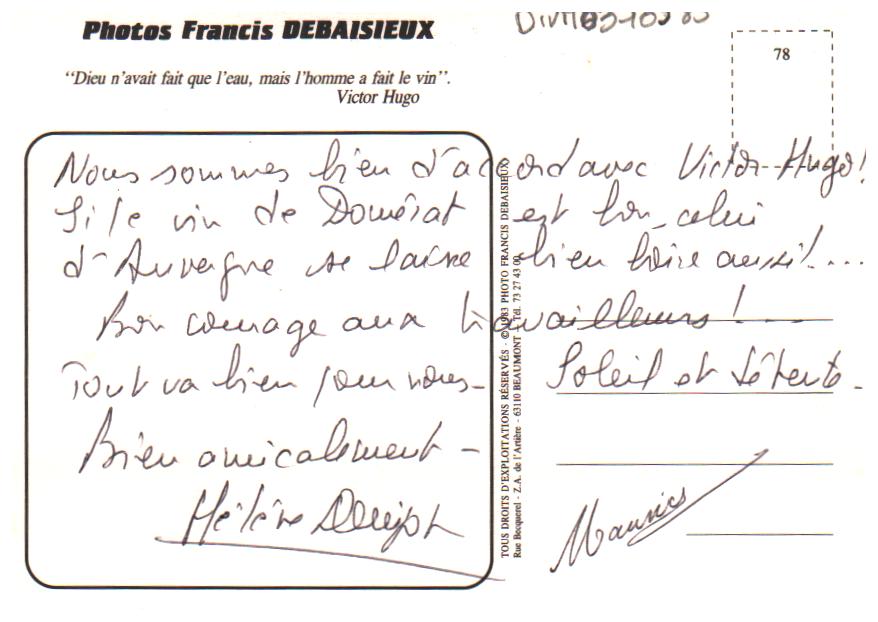 Photos Francis DEBAISIEUX
"Dieu n'avait fait que l'eau, mais l'homme a fait le vin".
Victor Hugo
78
Nous sommes bien d'accord avec Victor-Hugo!
Si le vin de Domérat est bon, celui
d'Auvergne se laisse bien boire aussi!...
Bon courage aux travailleurs!
Tout va bien pour nous - Soleil et détente -
Bien amicalement -
Hélène
Maurice
TOUS DROITS D'EXPLOITATIONS RÉSERVÉS - © 1983 PHOTO FRANCIS DEBAISIEUX
Rue Becquerel - Z.A. de l'Artière - 63110 BEAUMONT - Tél. 73 27 43 00